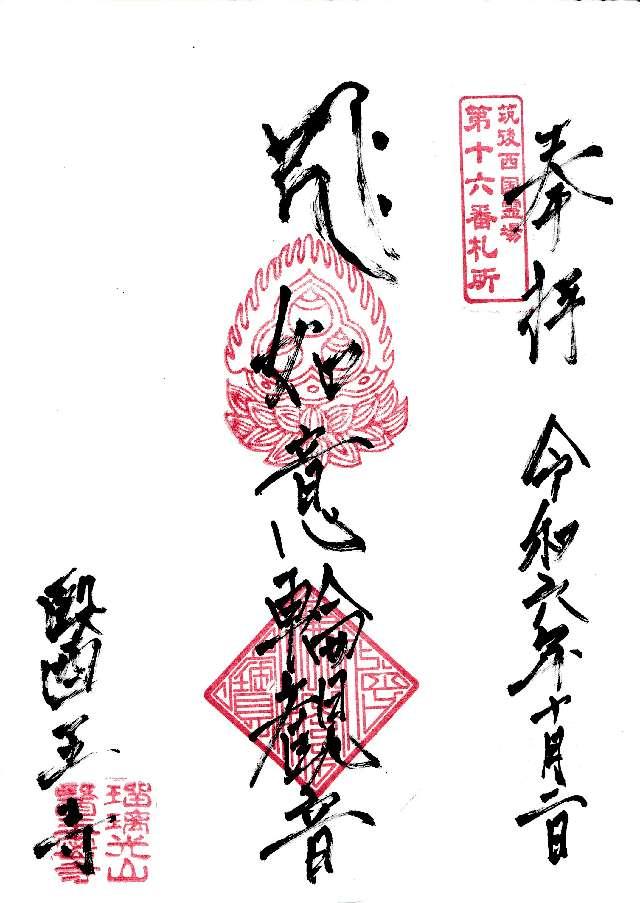 奉拝 令和六年十月二日
筑後西国霊場
第十六番札所
如意輪觀音
醫王寺
瑠璃光山
醫王寺